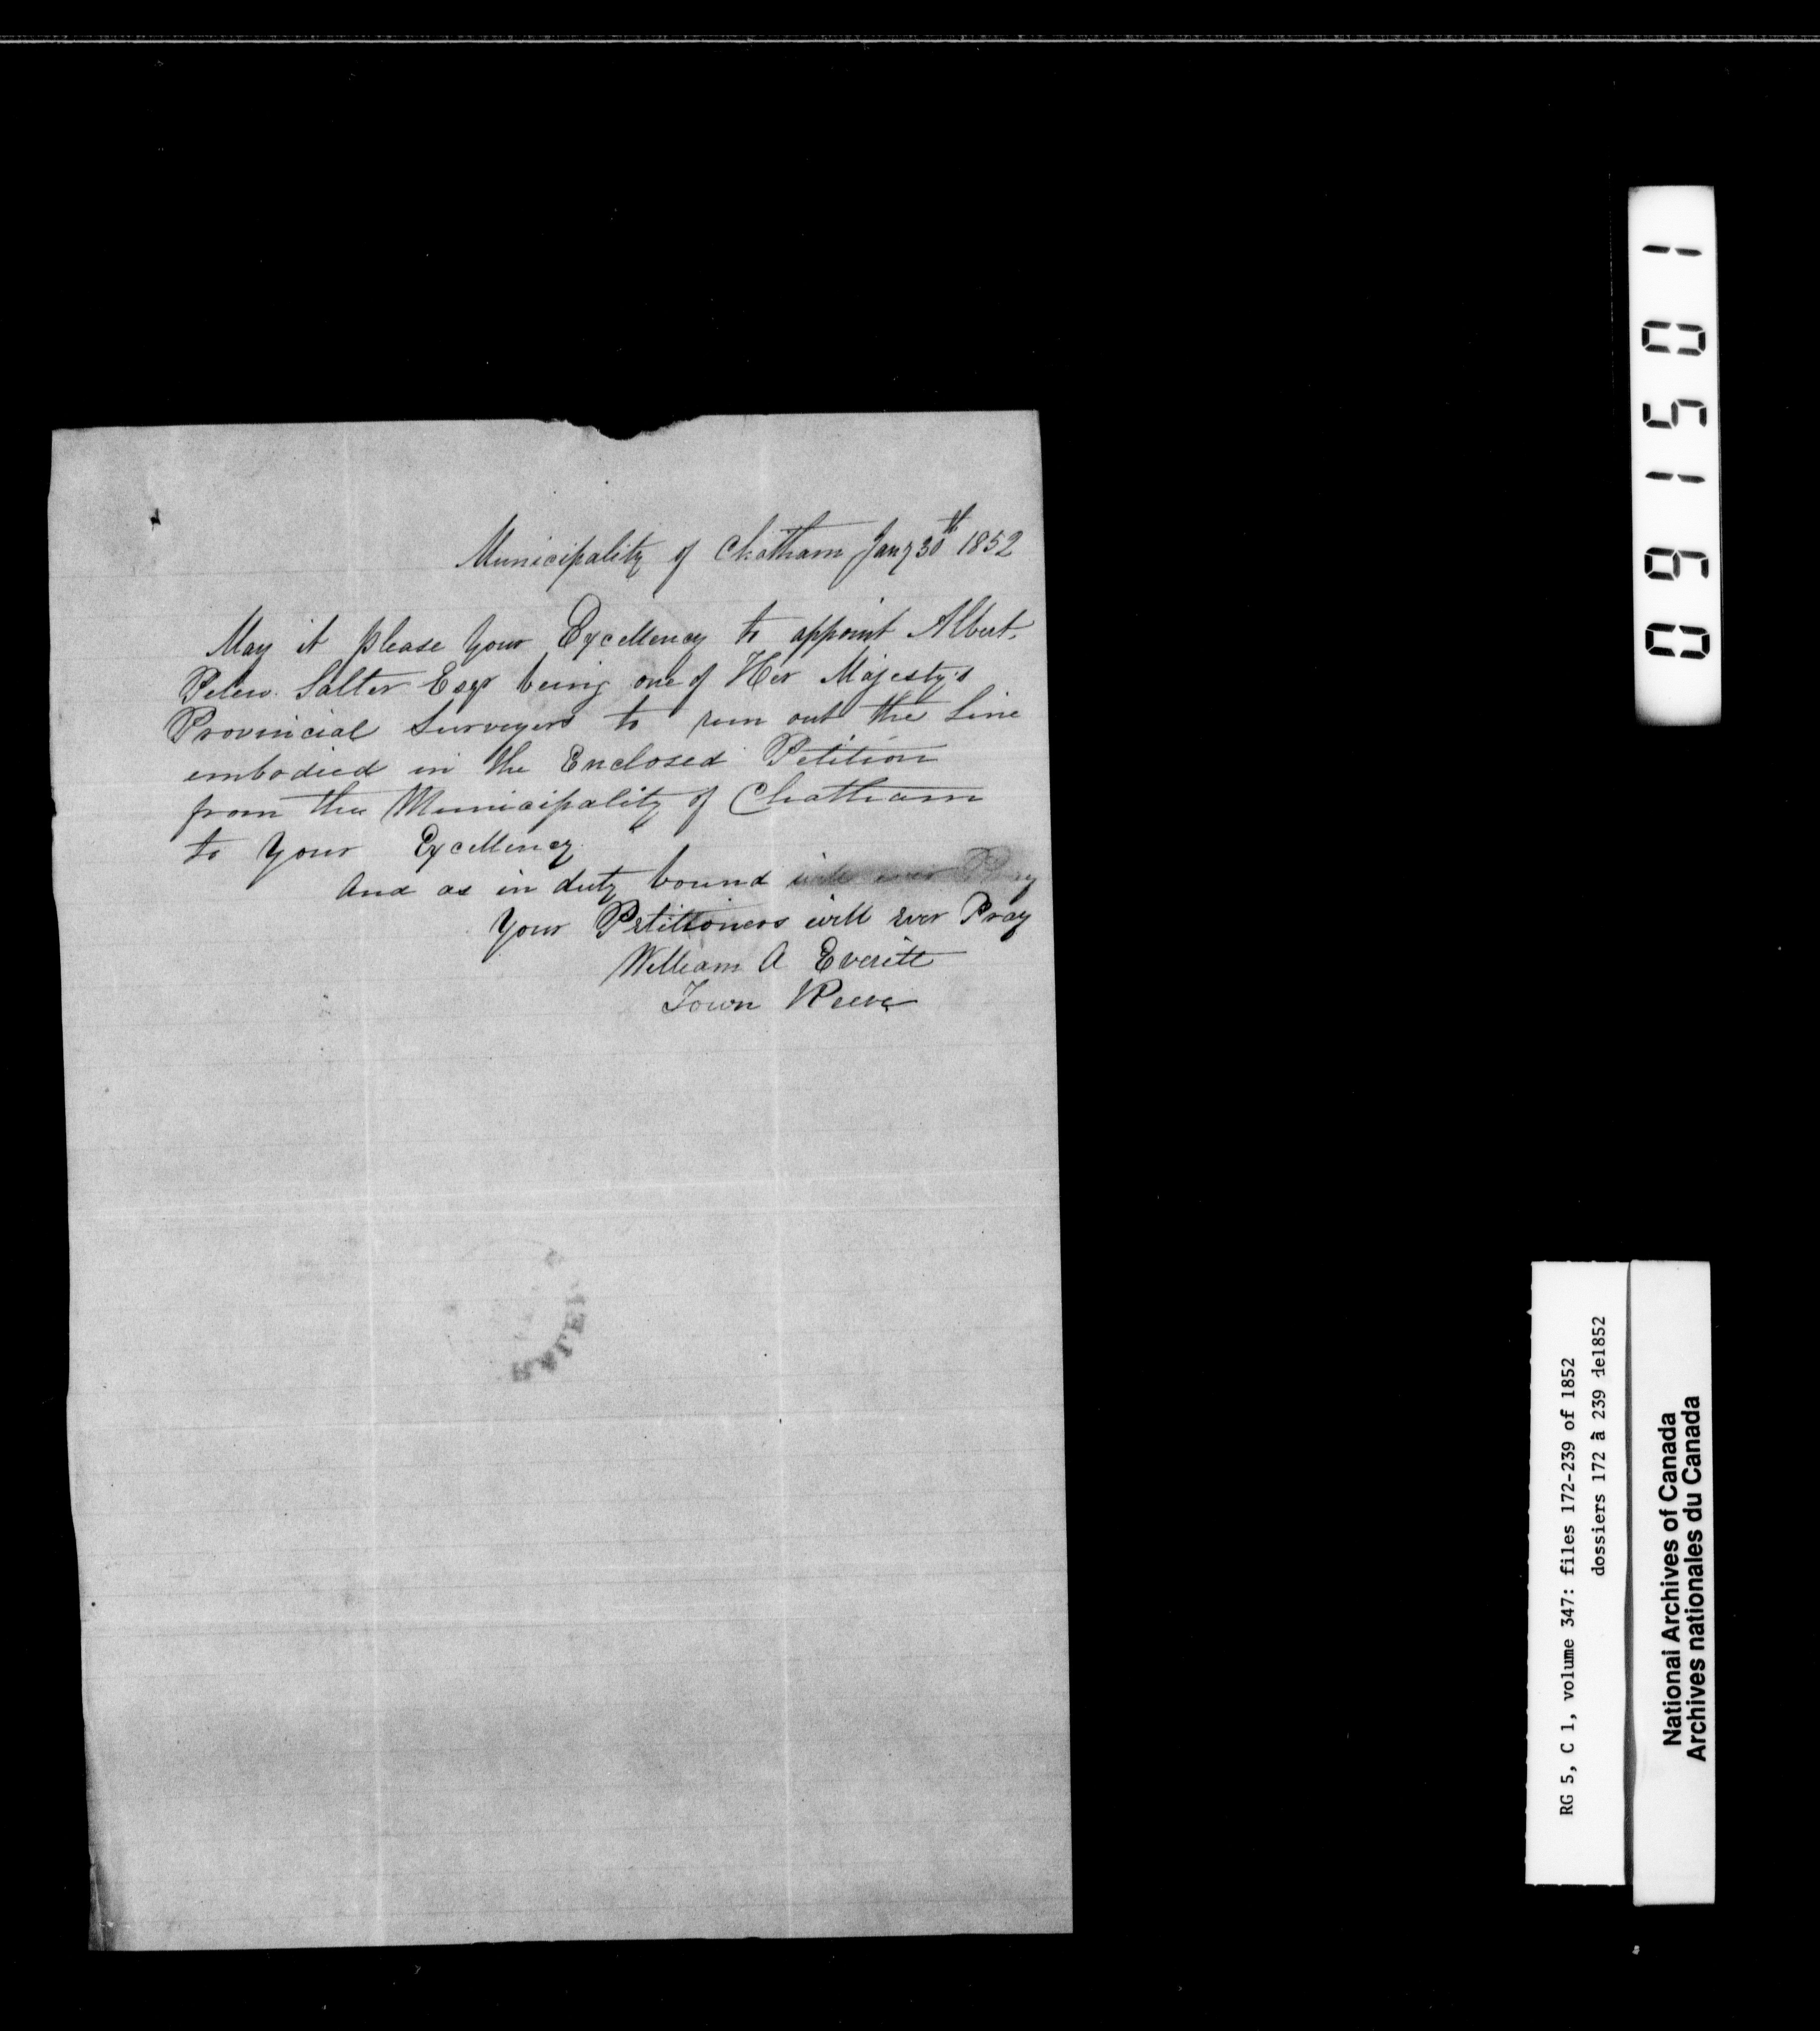 Municipality of Chatham Jany 30th 1852
May it please Your Excellency to appoint Albert.
Pelew Salter Esqr being one of Her Majesty's
Provincial Surveyors to run out the Line
embodied in the Enclosed Petition
from the Municipality of Chatham
to Your Excellency.
And as in duty bound
Your Petitioners will ever Pray
William A Everitt
Town Reeve
091501
RG 5, C 1, volume 347: files 172-239 of 1852
dossiers 172 à 239 de1852
National Archives of Canada
Archives nationales du Canada